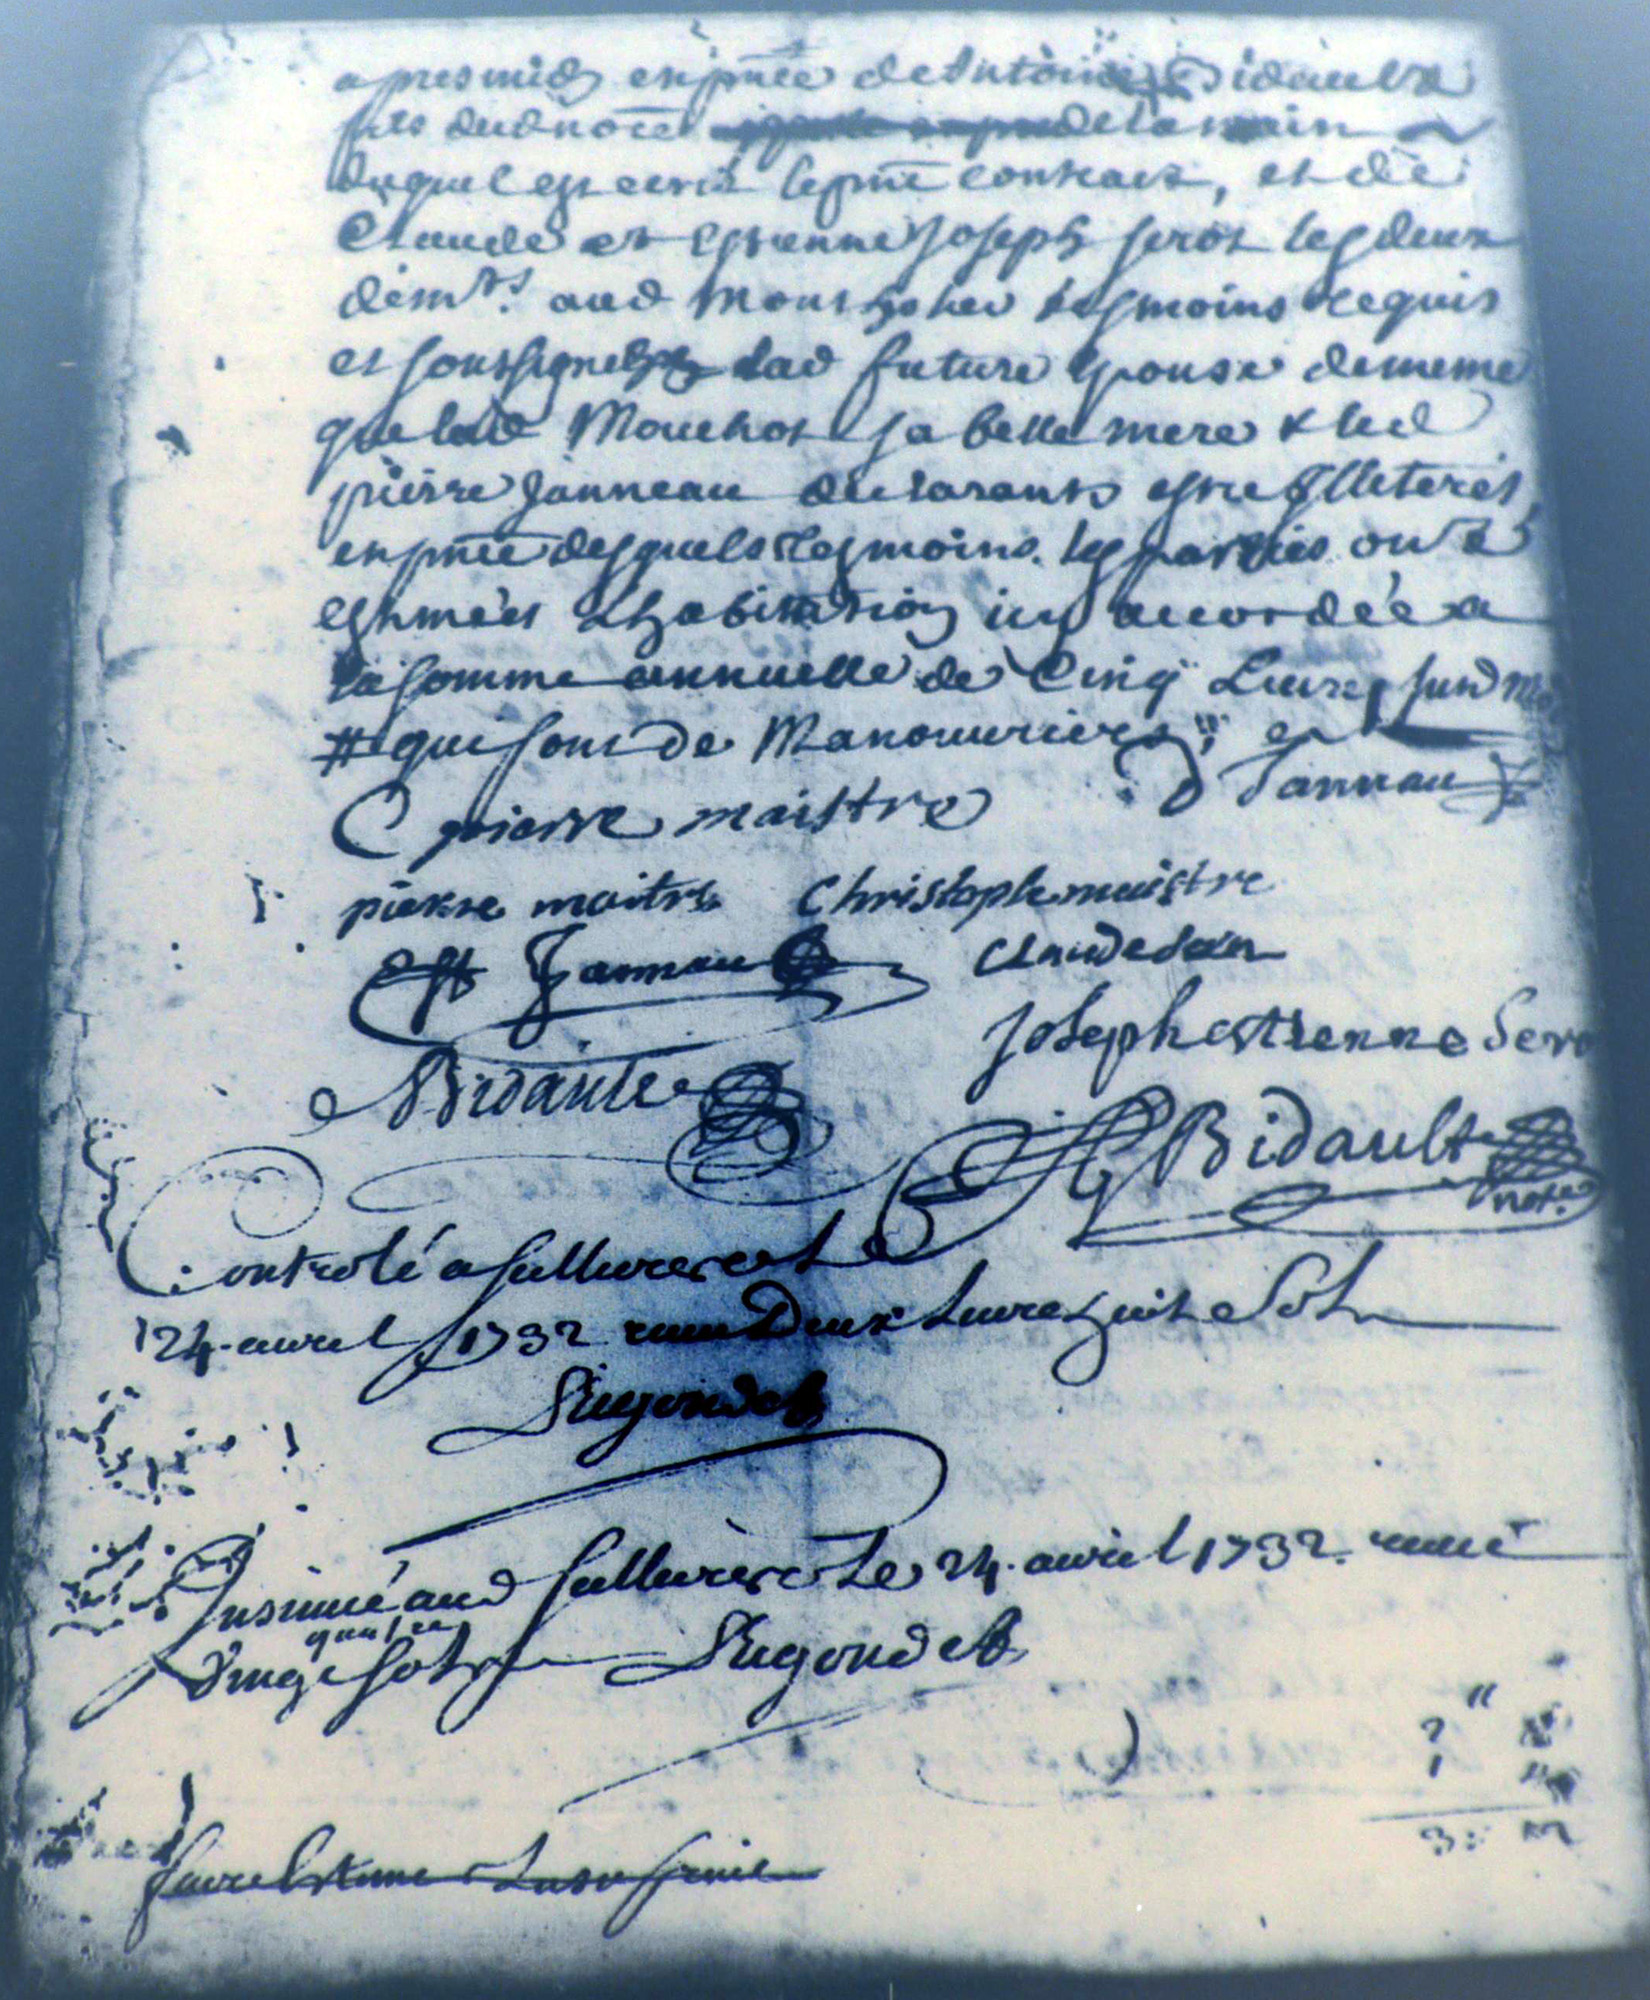 apres midy en pnce de Antoine Bidault
fils dud noire de la main
duquel est ecrit le pnt contract, et de
Claude et Estienne Joseph serot les deux
demts aud tesmoins requis
et soussignez lad future epouse de meme
que lad Mouchot sa belle mere & led
pierre Janneau declarants estre Illeterés,
en pnce desquels tesmoins les parties ont
estimées Lhabitation icy accordée a
la somme annuelle de Cinq Livres
# qui sont de Manouvriers
C pierre maistre D Jannau
pierre maitre Christophe maistre
Jannau Claude
Joseph estienne Sero
Bidault
Bidault
note
Controlé a le
24 avril 1732 receu Deux Livres huit Sols
Insinué aud le 24 avril 1732 receu
quatre
Vingt sols
2 "
1
3